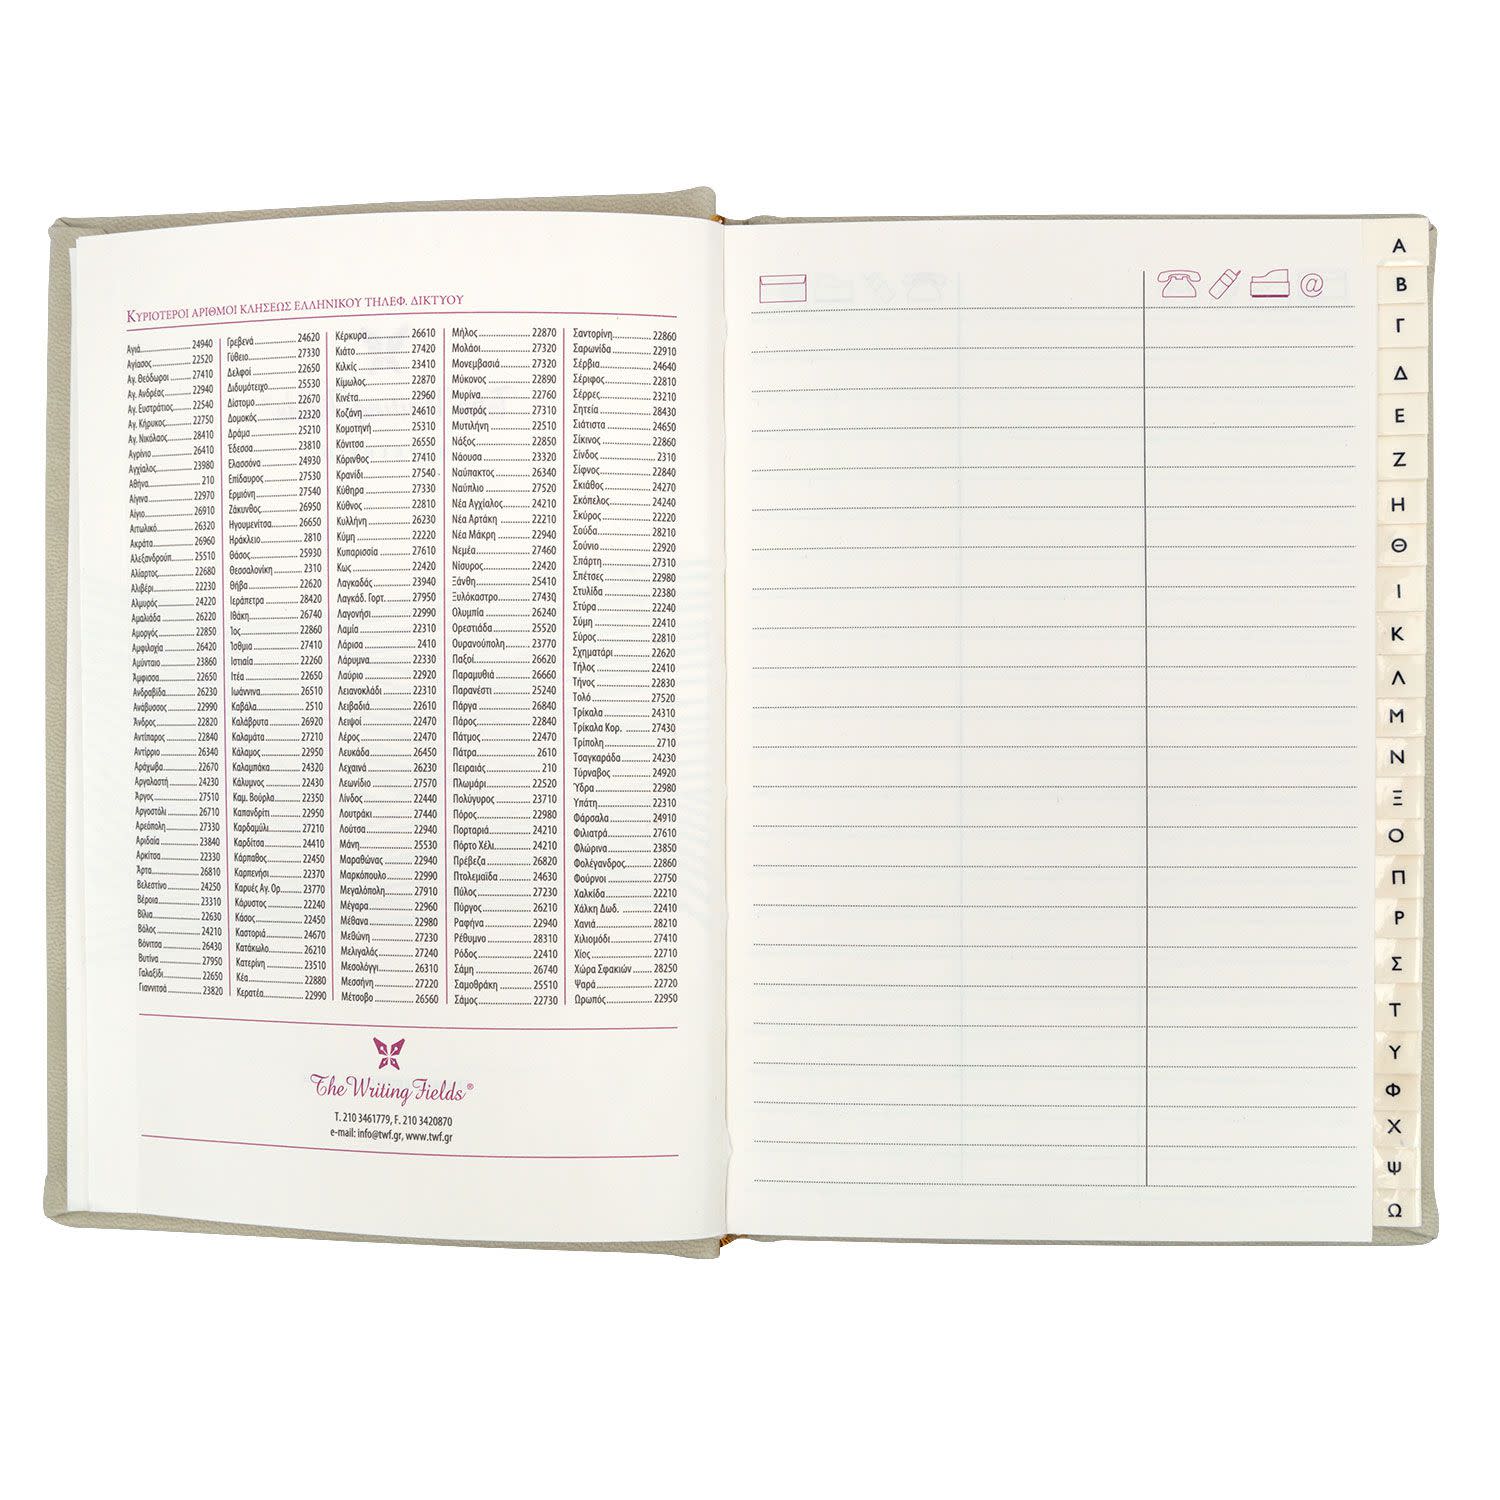 ΚΥΡΙΟΤΕΡΟΙ ΑΡΙΘΜΟΙ ΚΛΗΣΕΩΣ ΕΛΛΗΝΙΚΟΥ ΤΗΛΕΦ. ΔΙΚΤΥΟΥ
Αγιά 24940
Αγίασος 22520
Αγ. Θεόδωροι 27410
Αγ. Ανδρέας 22940
Αγ. Ευστράτιος 22540
Αγ. Κήρυκος 22750
Αγ. Νικόλαος 28410
Αγρίνιο 26410
Αγχίαλος 23980
Αθήνα 210
Αίγινα 22970
Αίγιο 26910
Αιτωλικό 26320
Ακράτα 26960
Αλεξανδρούπ. 25510
Αλίαρτος 22680
Αλιβέρι 22230
Αλμυρός 24220
Αμαλιάδα 26220
Αμοργός 22850
Αμφιλοχία 26420
Αμύνταιο 23860
Άμφισσα 22650
Ανδραβίδα 26230
Ανάβυσσος 22990
Άνδρος 22820
Αντίπαρος 22840
Αντίρριο 26340
Αράχωβα 22670
Αργαλαστή 24230
Άργος 27510
Αργοστόλι 26710
Αρεόπολη 27330
Αριδαία 23840
Αρκίτσα 22330
Άρτα 26810
Βελεστίνο 24250
Βέροια 23310
Βίλια 22630
Βόλος 24210
Βόνιτσα 26430
Βυτίνα 27950
Γαλαξίδι 22650
Γιαννιτσά 23820
Γρεβενά 24620
Γύθειο 27330
Δελφοί 22650
Διδυμότειχο 25530
Δίστομο 22670
Δομοκός 22320
Δράμα 25210
Έδεσσα 23810
Ελασσόνα 24930
Επίδαυρος 27530
Ερμιόνη 27540
Ζάκυνθος 26950
Ηγουμενίτσα 26650
Ηράκλειο 2810
Θάσος 25930
Θεσσαλονίκη 2310
Θήβα 22620
Ιεράπετρα 28420
Ιθάκη 26740
Ίος 22860
Ίσθμια 27410
Ιστιαία 22260
Ιτέα 22650
Ιωάννινα 26510
Καβάλα 2510
Καλάβρυτα 26920
Καλαμάτα 27210
Κάλαμος 22950
Καλαμπάκα 24320
Κάλυμνος 22430
Καμ. Βούρλα 22350
Καπανδρίτι 22950
Καρδαμύλι 27210
Καρδίτσα 24410
Κάρπαθος 22450
Καρπενήσι 22370
Καρυές Αγ. Ορ. 23770
Κάρυστος 22240
Κάσος 22450
Καστοριά 24670
Κατάκωλο 26210
Κατερίνη 23510
Κέα 22880
Κερατέα 22990
Κέρκυρα 26610
Κιάτο 27420
Κιλκίς 23410
Κίμωλος 22870
Κινέτα 22960
Κοζάνη 24610
Κομοτηνή 25310
Κόνιτσα 26550
Κόρινθος 27410
Κρανίδι 27540
Κύθηρα 27330
Κύθνος 22810
Κυλλήνη 26230
Κύμη 22220
Κυπαρισσία 27610
Κως 22420
Λαγκαδάς 23940
Λαγκάδ. Γορτ. 27950
Λαγονήσι 22990
Λαμία 22310
Λάρισα 2410
Λάρυμνα 22330
Λαύριο 22920
Λειανοκλάδι 22310
Λειβαδιά 22610
Λειψοί 22470
Λέρος 22470
Λευκάδα 26450
Λεχαινά 26230
Λεωνίδιο 27570
Λίνδος 22440
Λουτράκι 27440
Λούτσα 22940
Μάνη 25530
Μαραθώνας 22940
Μαρκόπουλο 22990
Μεγαλόπολη 27910
Μέγαρα 22960
Μέθανα 22980
Μεθώνη 27230
Μελιγαλάς 27240
Μεσολόγγι 26310
Μεσσήνη 27220
Μέτσοβο 26560
Μήλος 22870
Μολάοι 27320
Μονεμβασιά 27320
Μύκονος 22890
Μυρίνα 22760
Μυστράς 27310
Μυτιλήνη 22510
Νάξος 22850
Νάουσα 23320
Ναύπακτος 26340
Ναύπλιο 27520
Νέα Αγχίαλος 24210
Νέα Αρτάκη 22210
Νέα Μάκρη 22940
Νεμέα 27460
Νίσυρος 22420
Ξάνθη 25410
Ξυλόκαστρο 27430
Ολυμπία 26240
Ορεστιάδα 25520
Ουρανούπολη 23770
Παξοί 26620
Παραμυθιά 26660
Παρανέστι 25240
Πάργα 26840
Πάρος 22840
Πάτμος 22470
Πάτρα 2610
Πειραιάς 210
Πλωμάρι 22520
Πολύγυρος 23710
Πόρος 22980
Πορταριά 24210
Πόρτο Χέλι 24210
Πρέβεζα 26820
Πτολεμαΐδα 24630
Πύλος 27230
Πύργος 26210
Ραφήνα 22940
Ρέθυμνο 28310
Ρόδος 22410
Σάμη 26740
Σαμοθράκη 25510
Σάμος 22730
Σαντορίνη 22860
Σαρωνίδα 22910
Σέρβια 24640
Σέριφος 22810
Σέρρες 23210
Σητεία 28430
Σιάτιστα 24650
Σίκινος 22860
Σίνδος 2310
Σίφνος 22840
Σκιάθος 24270
Σκόπελος 24240
Σκύρος 22220
Σούδα 28210
Σούνιο 22920
Σπάρτη 27310
Σπέτσες 22980
Στυλίδα 22380
Στύρα 22240
Σύμη 22410
Σύρος 22810
Σχηματάρι 22620
Τήλος 22410
Τήνος 22830
Τολό 27520
Τρίκαλα 24310
Τρίκαλα Κορ. 27430
Τρίπολη 2710
Τσαγκαράδα 24230
Τύρναβος 24920
Ύδρα 22980
Υπάτη 22310
Φάρσαλα 24910
Φιλιατρά 27610
Φλώρινα 23850
Φολέγανδρος 22860
Φούρνοι 22750
Χαλκίδα 22210
Χάλκη Δωδ. 22410
Χανιά 28210
Χιλιομόδι 27410
Χίος 22710
Χώρα Σφακιών 28250
Ψαρά 22720
Ωρωπός 22950
The Writing Fields®
T. 210 3461779, F. 210 3420870
e-mail: info@twf.gr, www.twf.gr
@
Α
Β
Γ
Δ
Ε
Ζ
Η
Θ
Ι
Κ
Λ
Μ
Ν
Ξ
Ο
Π
Ρ
Σ
Τ
Υ
Φ
Χ
Ψ
Ω